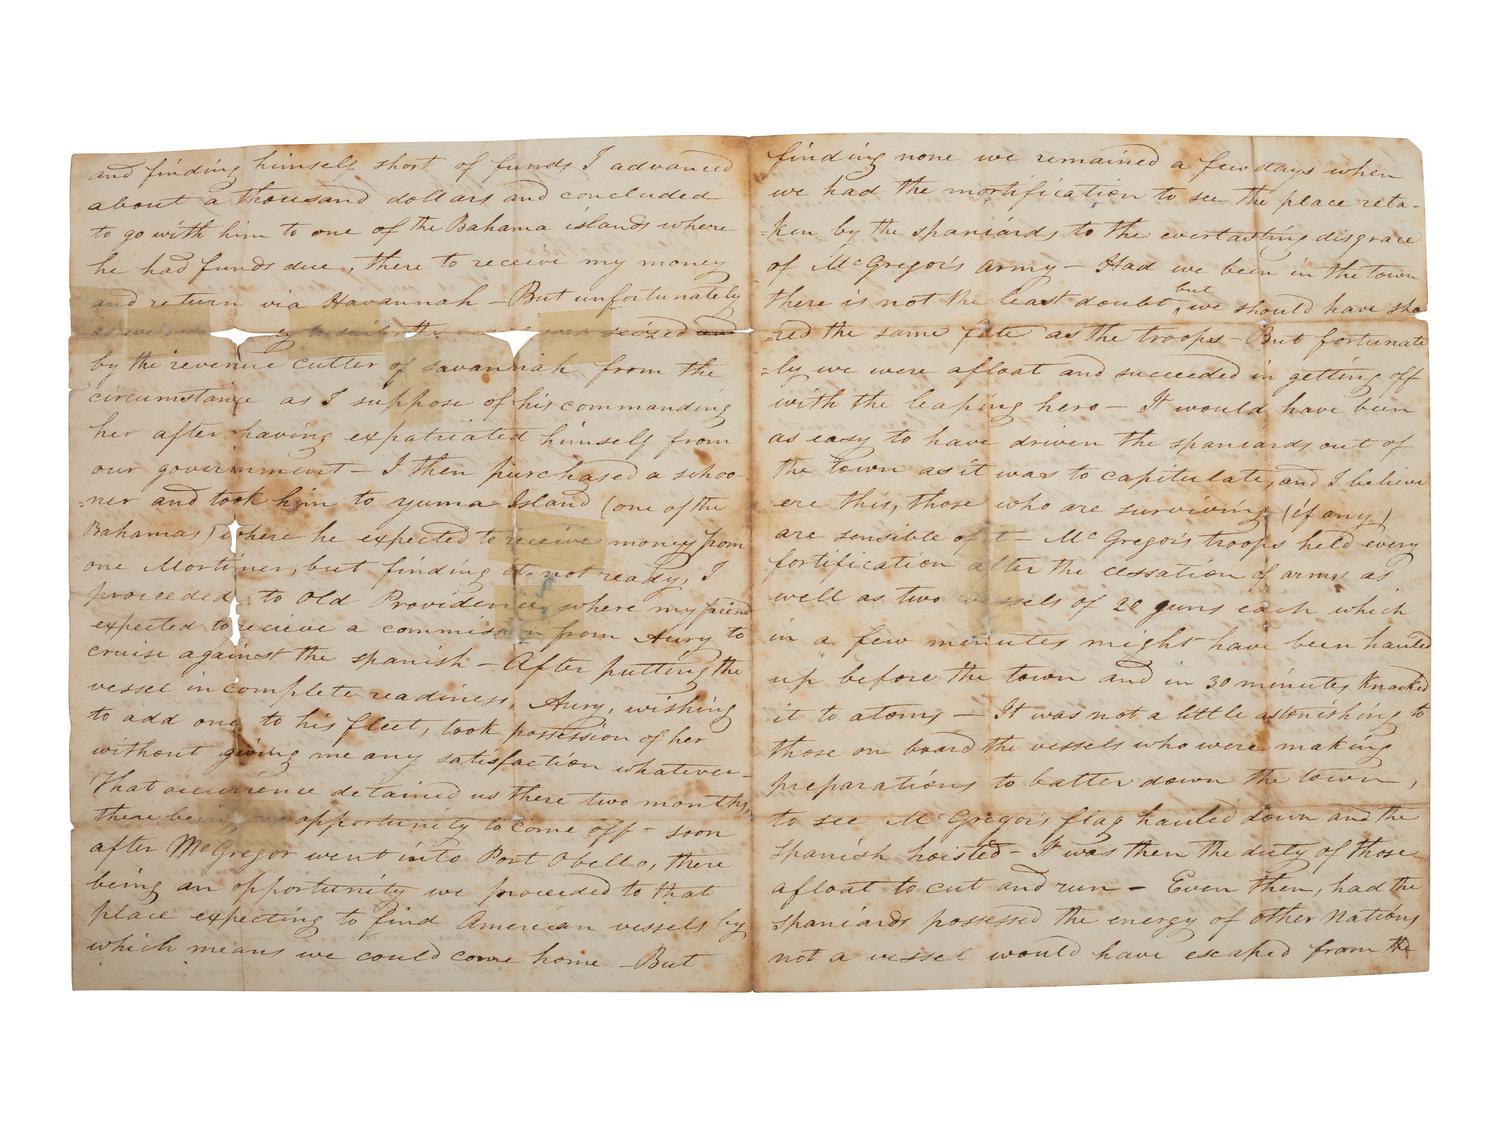 and finding himself short of funds I advanced
about a thousand dollars and concluded
to go with him to one of the Bahama islands where
he had funds due, there to receive my money
and return via Havannah - But unfortunately
seized and
by the revenue cutter of savannah from the
circumstance as I suppose of his commanding
her after having expatriated himself from
our government - I then purchased a schoo-
-ner and took him to yuma Island (one of the
Bahamas) where he expected to receive money from
one Mortimer, but finding it not ready, I
proceeded to Old Providence, where my friend
expected to recieve a commission from Aury to
cruise against the spanish - After putting the
vessel in complete readiness, Aury, wishing
to add one to his fleet, took possession of her
without giving me any satisfaction whatever -
That occurrence detained us there two months,
there being no opportunity to come off - soon
after McGregor went into Port Obello, there
being an opportunity we proceeded to that
place expecting to find American vessels by
which means we could come home - But
finding none we remained a few days when
we had the mortification to see the place reta-
-ken by the spaniards to the everlasting disgrace
of McGregor's army - Had we been in the town
there is not the least doubt, but we should have sha
-red the same fate as the troops - But fortunate
-ly we were afloat and succeeded in getting off
with the leaping hero - It would have been
as easy to have driven the spaniards out of
the town as it was to capitulate, and I believe
ere this, those who are surviving (if any)
are sensible of it - McGregor's troops held every
fortification after the cessation of arms as
well as two vessels of 20 guns each which
in a few minutes might have been hauled
up before the town and in 30 minutes knocked
it to atoms - It was not a little astonishing to
those on board the vessels who were making
preparations to batter down the town,
to see McGregor's flag hauled down and the
spanish hoisted - It was then the duty of those
afloat to cut and run - Even then, had the
spaniards possessed the energy of other Nations
not a vessel would have escaped from the